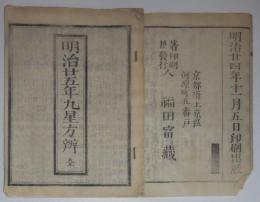 明治廿四年十一月五日印刷出版
京都市上京區
河原町五番戸
著作印刷
兼發行人 福田富藏
明治廿五年九星方辨 全